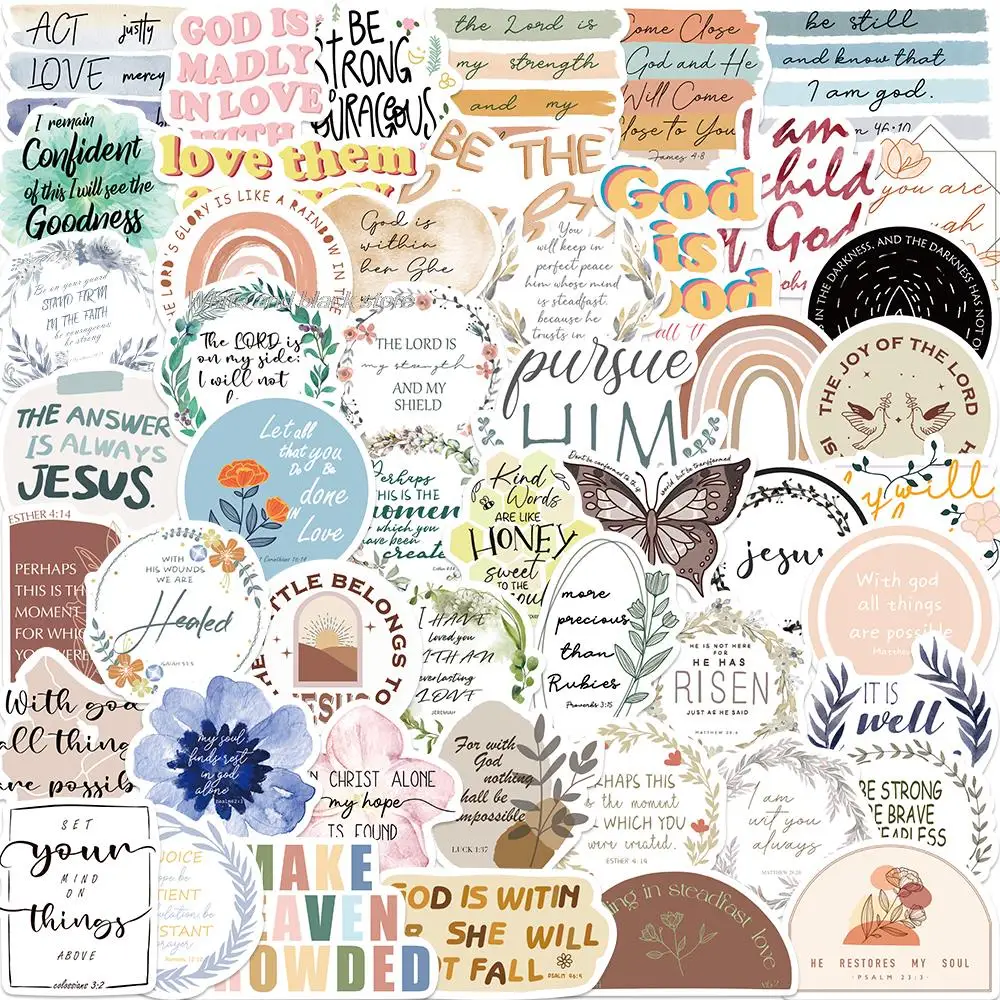 ACT justly
LOVE mercy
GOD IS
MADLY
IN LOVE
WITH
BE
STRONG
COURAGEOUS
the Lord is
my strength
and my
Come Close
God and He
Will Come
Close to You
James 4:8
be still
and know that
I am god.
46:10
I remain
Confident
of this I will see the
Goodness
love them
BE THE
God
is
I am
child
God
you are
THE LORD'S GLORY IS LIKE A RAINBOW IN THE
God is
within
her She
You
will keep in
perfect peace
him whose mind
is steadfast,
because he
trusts in
IN THE DARKNESS, AND THE DARKNESS HAS NOT
Be on your guard
STAND FIRM
IN THE FAITH
be courageous
be strong
White and black store
The LORD is
on my side:
I will not
THE LORD IS
my strength
AND MY
SHIELD
pursue
HIM
THE JOY OF THE LORD
IS
THE ANSWER
IS ALWAYS
JESUS.
Let all
that you
Do Be
done
IN
Love
1 Corinthians 16:14
Perhaps
THIS IS THE
moment
for which you
have been
created
Kind
Words
ARE LIKE
HONEY
sweet
TO THE
soul
Don't be conformed to this
world but be transformed
jesus
will
ESTHER 4:14
PERHAPS
THIS IS THE
MOMENT
FOR WHICH
YOU WERE
WITH
HIS WOUNDS
WE ARE
Healed
ISAIAH 53:5
THE BATTLE BELONGS TO
JESUS
I HAVE
loved you
WITH AN
everlasting
LOVE
JEREMIAH
more
precious
than
Rubies
Proverbs 3:15
HE IS NOT HERE
FOR
HE HAS
RISEN
JUST AS HE SAID
MATTHEW 28:6
With god
all things
are possible
Matthew
With god
all things
are possible
my soul
finds rest
in god
alone
Psalm62:1
CHRIST ALONE
my hope
IS FOUND
For with
God
nothing
shall be
impossible
LUCK 1:37
PERHAPS THIS
IS the moment
FOR WHICH YOU
were created.
ESTHER 4:14
I am
wit you
always
MATTHEW 28:20
IT IS
well
BE STRONG
BE BRAVE
BE FEARLESS
SET
your
MIND
ON
things
ABOVE
colossians 3:2
REJOICE
hope; be
PATIENT
tribulation; be
CONSTANT
prayer
Romans 12:12
MAKE
HEAVEN
CROWDED
GOD IS WITIN
HER SHE WILL
NOT FALL
PSALM 46:5
in steadfast love
HE RESTORES MY SOUL
·PSALM 23:3·